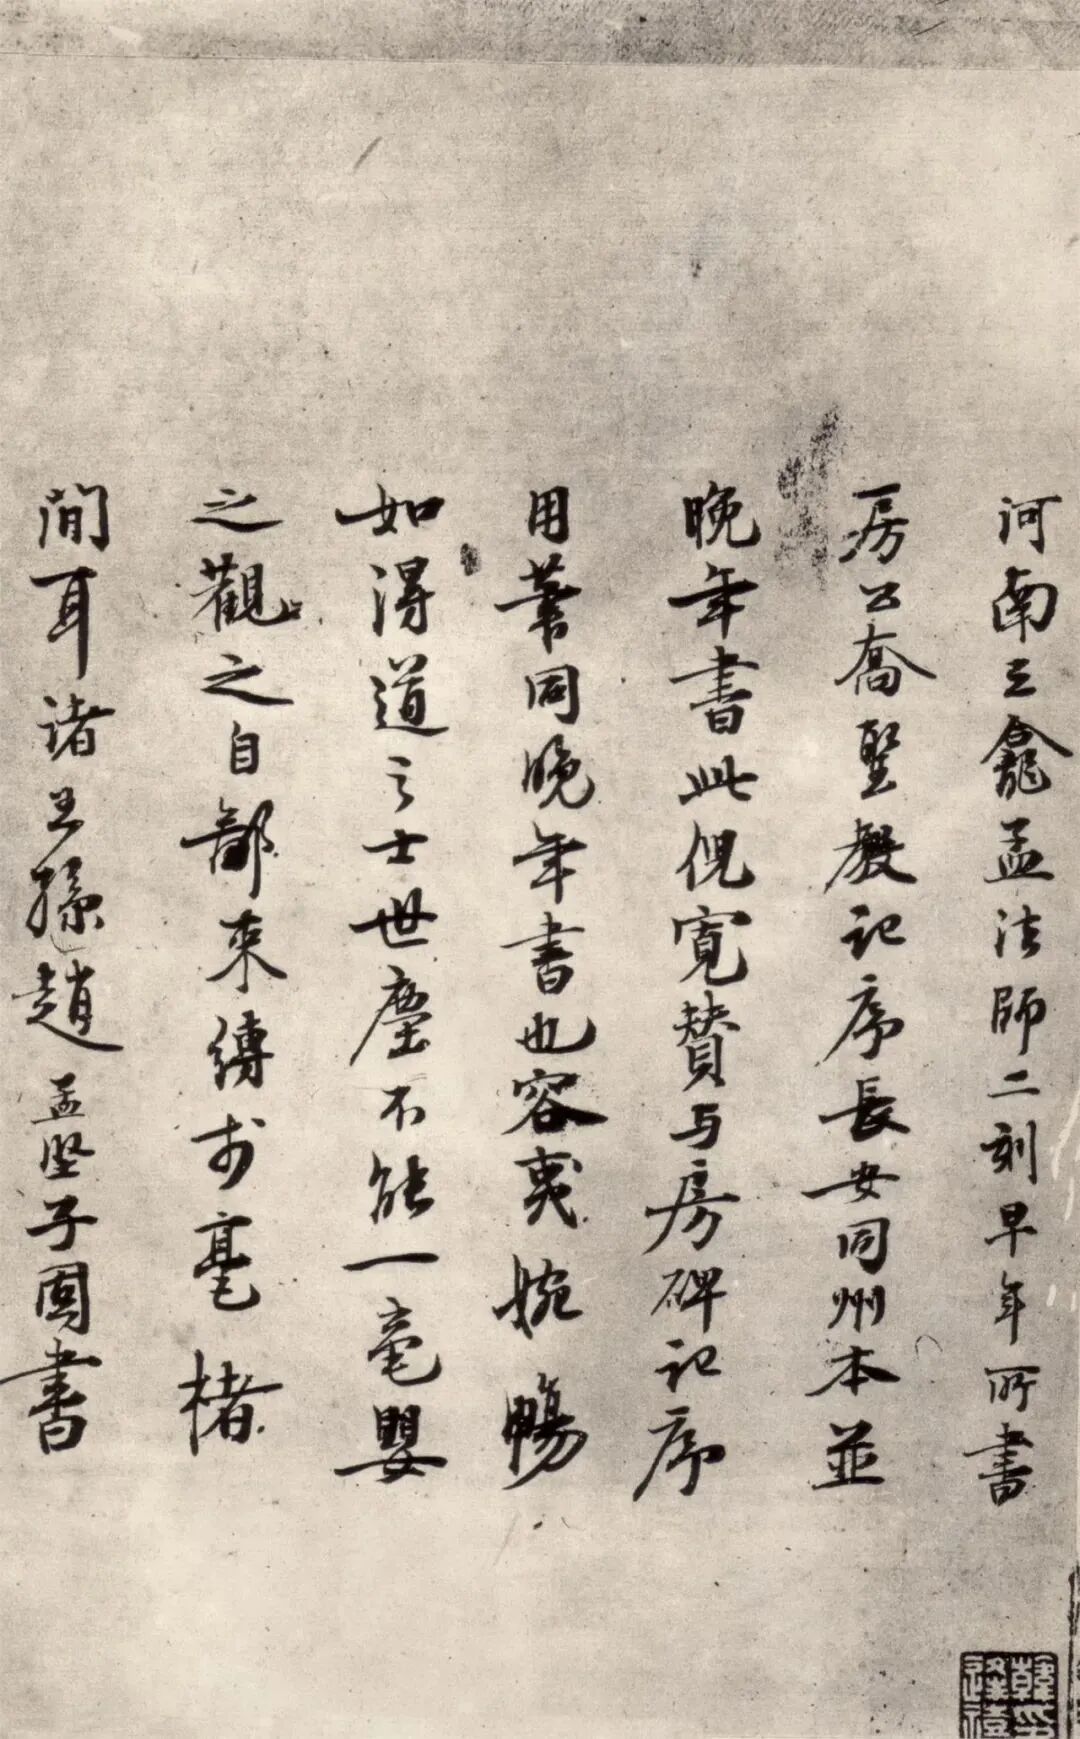 河南三龕孟法師二刻早年所書
房公喬聖教記序長安同州本並
晚年書此倪寬贊与房碑記序
用筆同晚年書也容夷婉暢
如得道之士世塵不能一毫嬰
之觀之自鄙來縛於毫楮
間耳諸王孫趙孟堅子固書